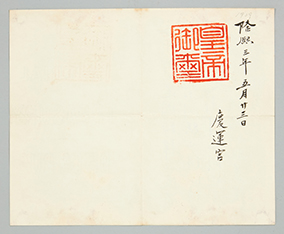 隆熙三年五月廿三日
皇帝
御璽
慶運宮